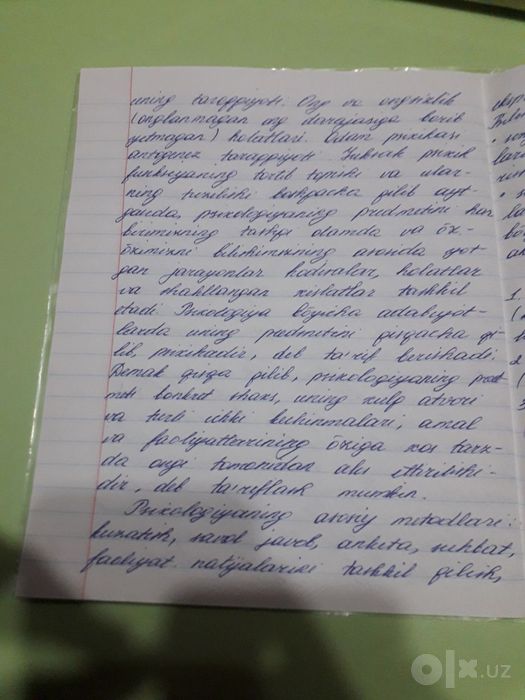 uning taraqqiyoti. Ong va ongsizlik
(onglanmagan ong darajasiga borib
yetmagan) holatlari. Odam psixikasi
antogenez taraqqiyoti. Yuksak psixik
funksiyaning tarkib topishi va ular-
ning tuzilishi boshqacha qilib ayt-
ganda, psixologiyaning predmetini har
birimizning tashqi olamda va o'z-
o'zimizni bilishimizning asosida yot-
gan jarayonlar hodisalar, holatlar
va shakllangan xislatlar tashkil
etadi. Psixologiya bo'yicha adabiyot-
larda uning predmetini qisqacha qi-
lib, psixikadir, deb ta'rif berishadi.
Demak qisqa qilib, psixologiyaning pred-
meti konkret shaxs, uning xulq atvori
va turli ichki kechinmalari, amal
va faoliyatlarining o'ziga xos tarz-
da ongi tomonidan aks ettirilishi-
dir, deb ta'riflash mumkin.
Psixologiyaning asosiy metodlari:
kuzatish, savol javob, anketa, suhbat,
faoliyat natijalarini tashkil qilish,
olx.uz